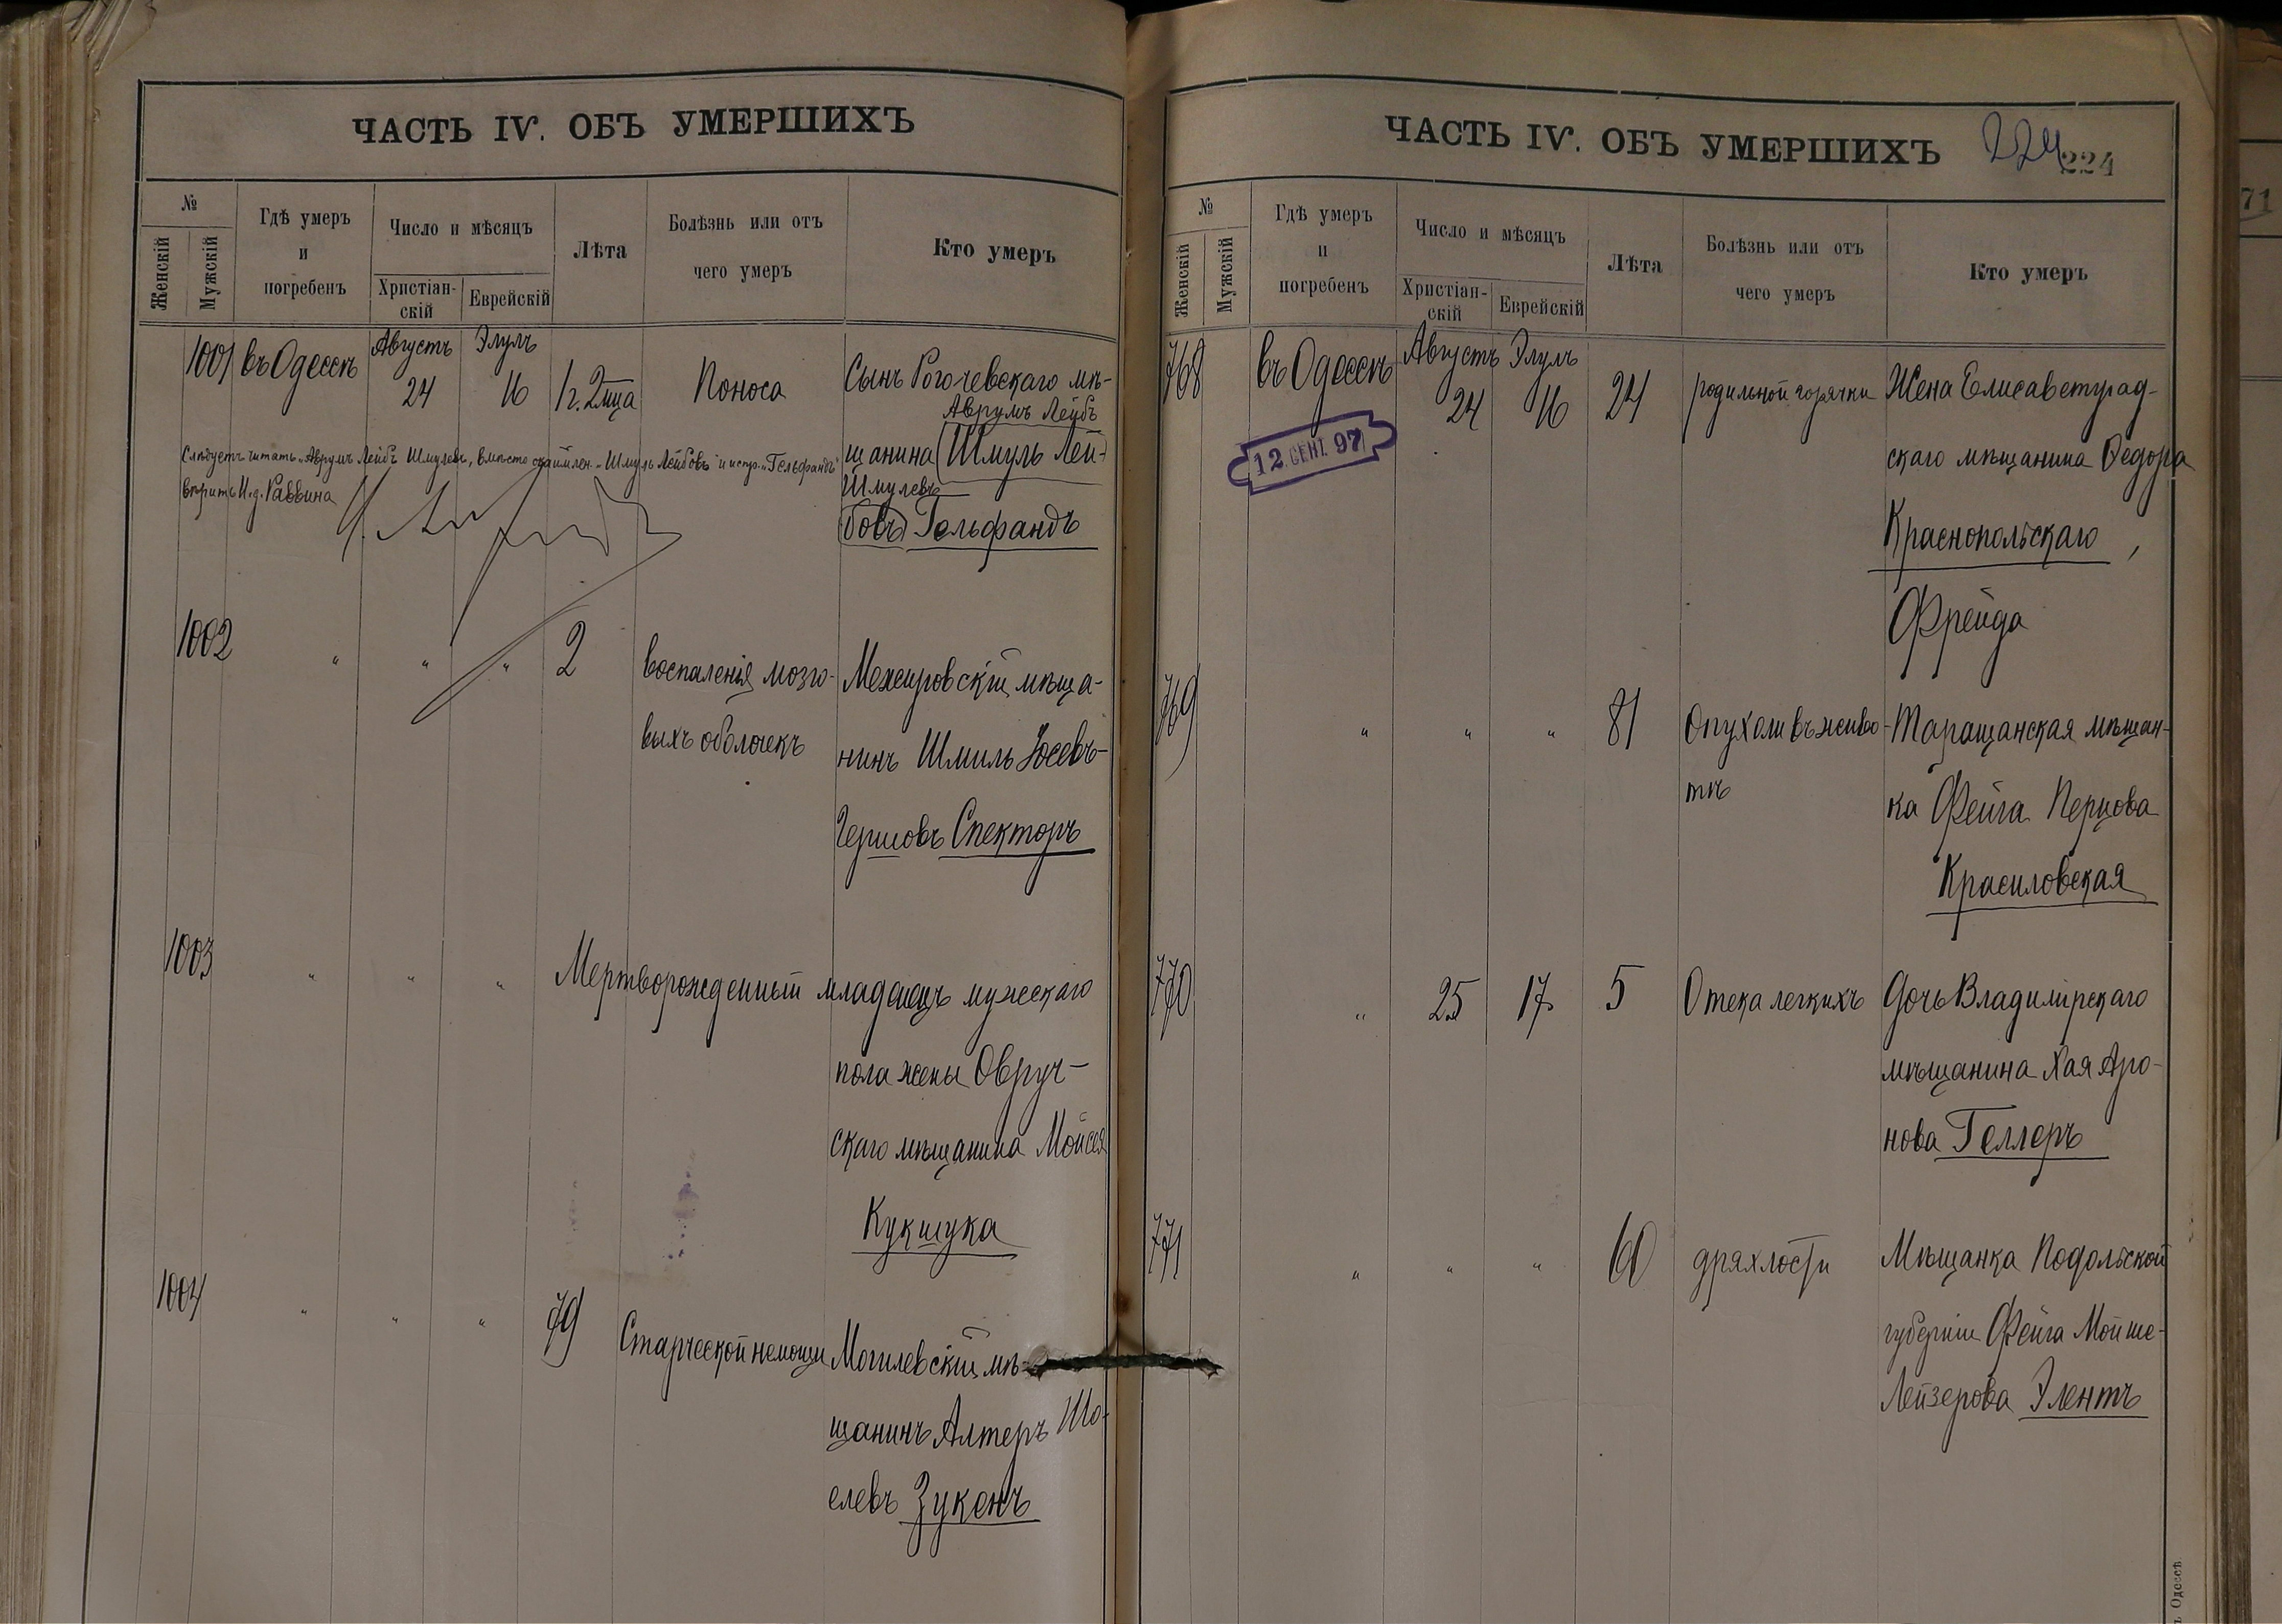 ЧАСТЬ IV. ОБЪ УМЕРШИХЪ
№
Женскій
Мужскій
Гдѣ умеръ
и
погребенъ
Число и мѣсяцъ
Христіан-
скій
Еврейскій
Лѣта
Болѣзнь или отъ
чего умеръ
Кто умеръ
1001 въ Одессѣ Августъ 24 Элулъ 16 1 г. 2 мца Поноса Сынъ Рогочевскаго мѣ-
Аврумъ Лейбъ
щанина (Шмуль Лей-
Шмулевъ
бовъ) Гельфандъ
Слѣдуетъ читать "Аврумъ Лейбъ Шмулевъ, вмѣсто "Шмуль Лейбовъ" и испр. "Гельфандъ"
вѣрить И. д. Раввина
1002 " " " 2 воспаленія мозго- Межировскій мѣща-
выхъ оболочекъ нинъ Шмиль Іосевъ-
Гершовъ Спекторъ
1003 " " " Мертворожденный младенецъ мужскаго
пола жены Овруч-
скаго мѣщанина Мойсея
Кукшука
1004 " " " 79 Старческой немощи Могилевскій мѣ-
щанинъ Алтеръ Шо-
елевъ Зукенъ
ЧАСТЬ IV. ОБЪ УМЕРШИХЪ 224 224
№
Женскій
Мужскій
Гдѣ умеръ
и
погребенъ
Число и мѣсяцъ
Христіан-
скій
Еврейскій
Лѣта
Болѣзнь или отъ
чего умеръ
Кто умеръ
768 въ Одессѣ Августъ 24 Элулъ 16 24 родильной горячки Жена Елисаветград-
12 СЕНТ. 97
скаго мѣщанина Ѳедора
Краснопольскаго,
Фрейда
769 " " " 81 Опухоли въ живо- Таращанская мѣщан-
тѣ ка Фейга Перцова
Красиловская
770 " 25 17 5 Отека легкихъ Дочь Владимірскаго
мѣщанина Хая Аро-
нова Геллеръ
771 " " " 60 дряхлости Мѣщанка Подольской
губерніи Фейга Мойше-
Лейзерова Элентъ
71
Одессѣ.